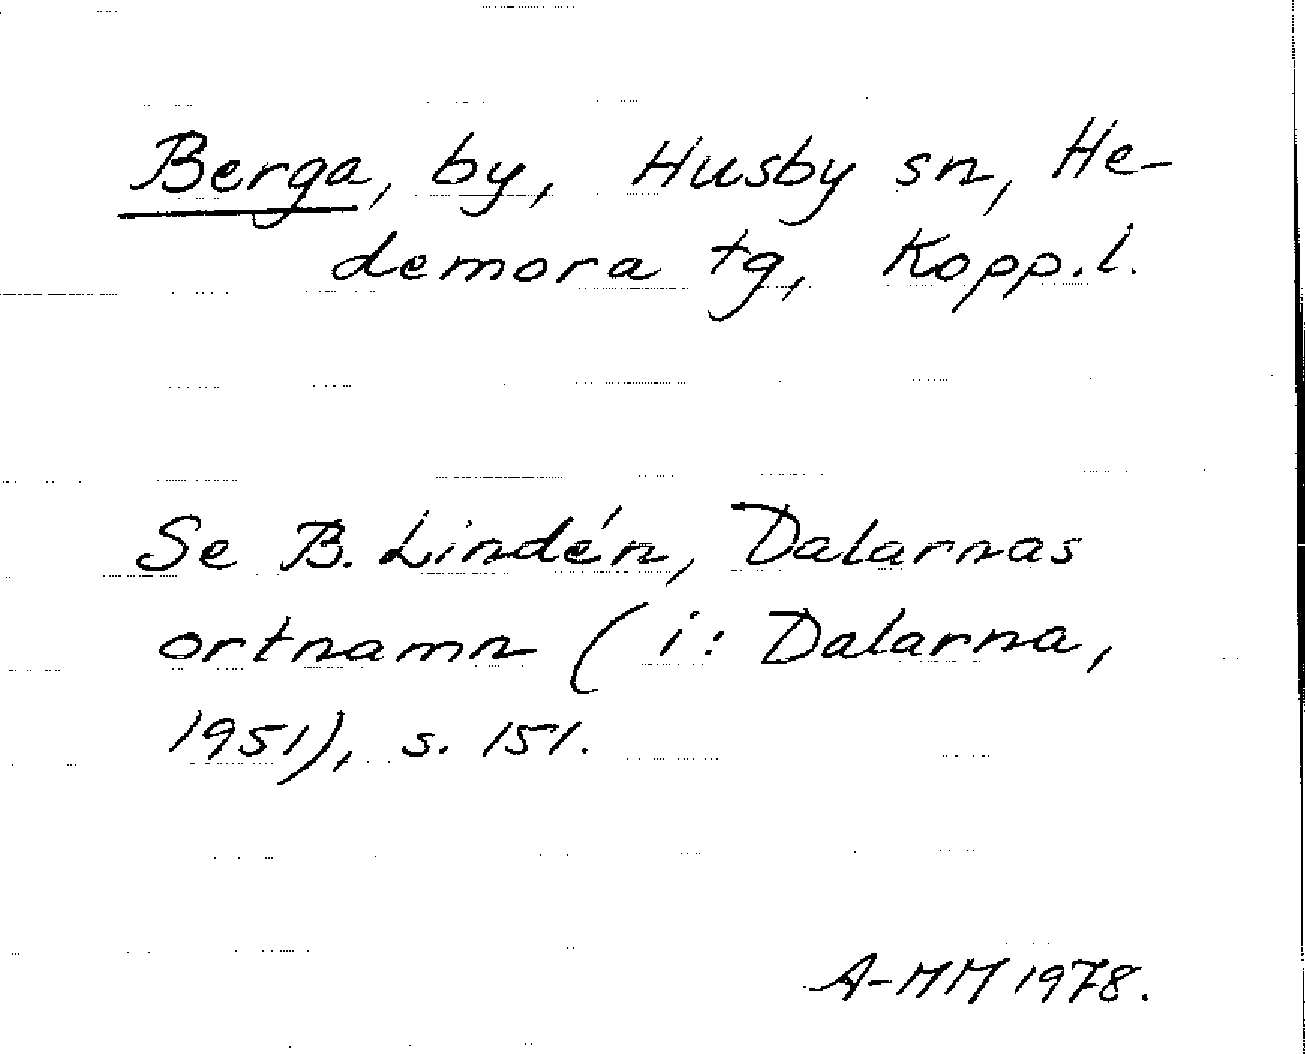 Berga, by, Husby sn, He-
demora tg, Kopp.l.
Se B. Lindén, Dalarnas
ortnamn (i: Dalarna,
1951), s. 151.
A-MM 1978.